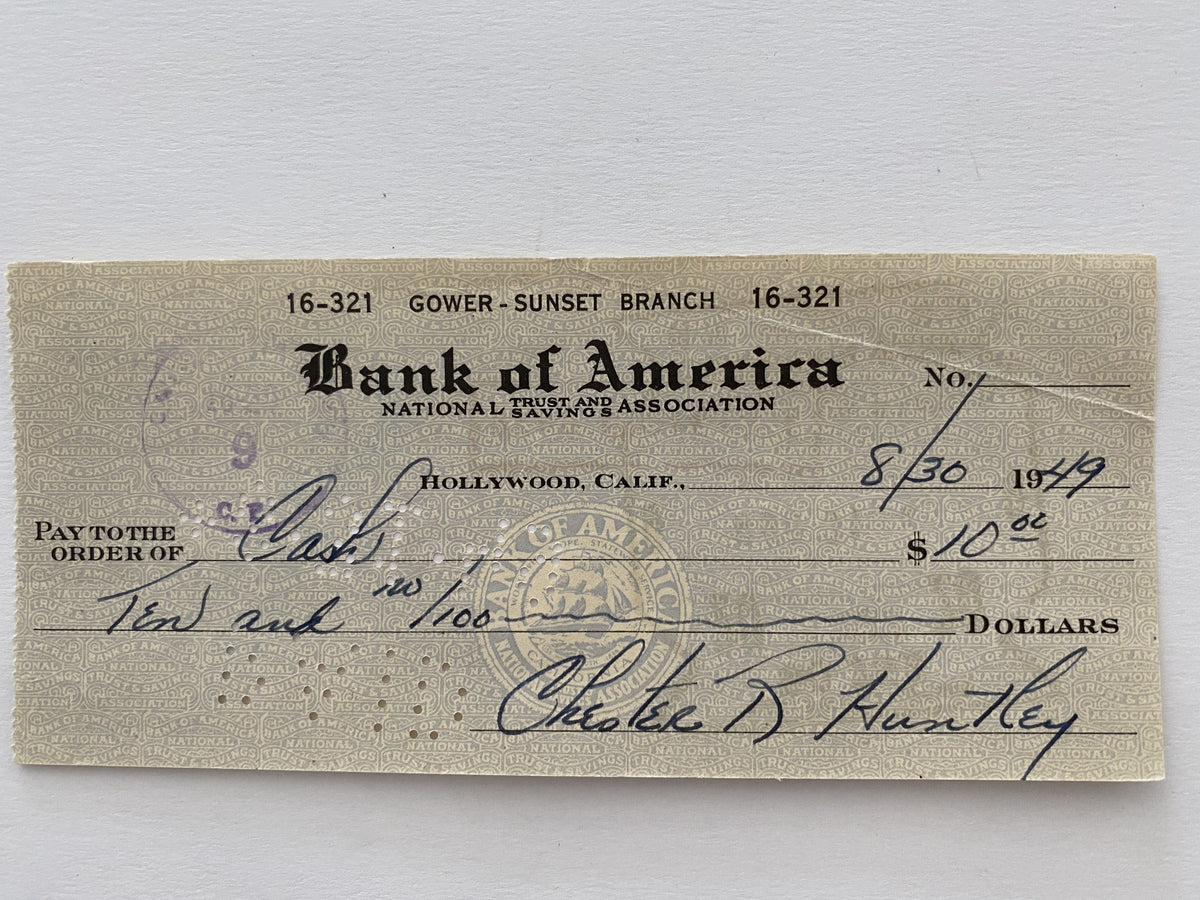 16-321 GOWER-SUNSET BRANCH 16-321
Bank of America
NATIONAL TRUST AND SAVINGS ASSOCIATION
No.
HOLLYWOOD, CALIF., 8/30 1949
9
C. E.
PAY TO THE ORDER OF Cash $10 00
Ten and no/100 DOLLARS
BANK OF AMERICA
NATIONAL ASSOCIATION
Chester R Huntley